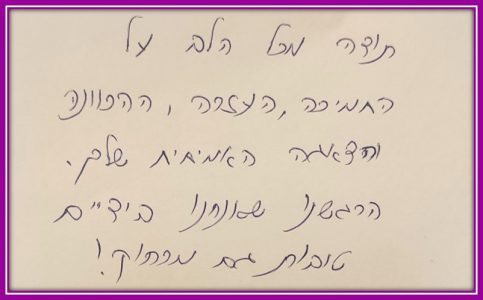 תודה מכל הלב על
התמיכה, העזרה, ההכוונה
והדאגה האמיתית שלכן.
הרגשנו שאנחנו בידיים
טובות גם מרחוק!